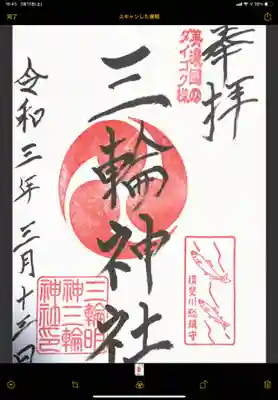 完了
スキャンした書類
奉拝
美濃國の
ダイコク様
三輪神社
揖斐川総鎮守
令和三年三月十三日
三輪明
神三輪
神社印